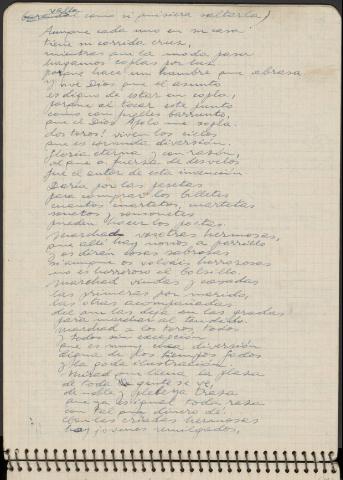 valla
como si quisiera saltarla)
Aunque cada uno en su casa
tiene su corrida cruz,
mientras aun la moda pasar
hagamos coplas por luz
porque hace un hambre que abrasa
y vive Dios que el asunto
es digno de estar en coplas,
porque al tocar este punto
como con fuelles barrunto,
que el Dios Apolo me sopla.
dos toros! viven los cielos
que es corrunda diversión.
Gloria eterna y con razón,
al que a fuerza de desvelos
fue el autor de esta invención
Daría por las pesetas
para comprar los billetes
cuantos cuartetos, cuartetas
sonetos y sonsonetes
pueden hacer los poetas.
Marchad vosotras hermosas,
que allí hay novios a porrillo
y os dirán cosas sabrosas
Si aunque os voláis, horrorosas
no es horroroso el bolsillo.
Marchad viudas y casadas
las primeras por marido,
las otras acompañadas
del que las deja en las gradas
para marchar al tendido.
Marchad a los toros, todos
y todos sin excepción
que es muy diversión
digna de los tiempos godos
y la goda ilustración.
Mirad que llena la plaza
de toda gente se ve,
de noble y plebeya traza
que ya es igual toda raza
con tal que dinero dé.
Con las criadas hermosas
hay jóvenes remilgados,